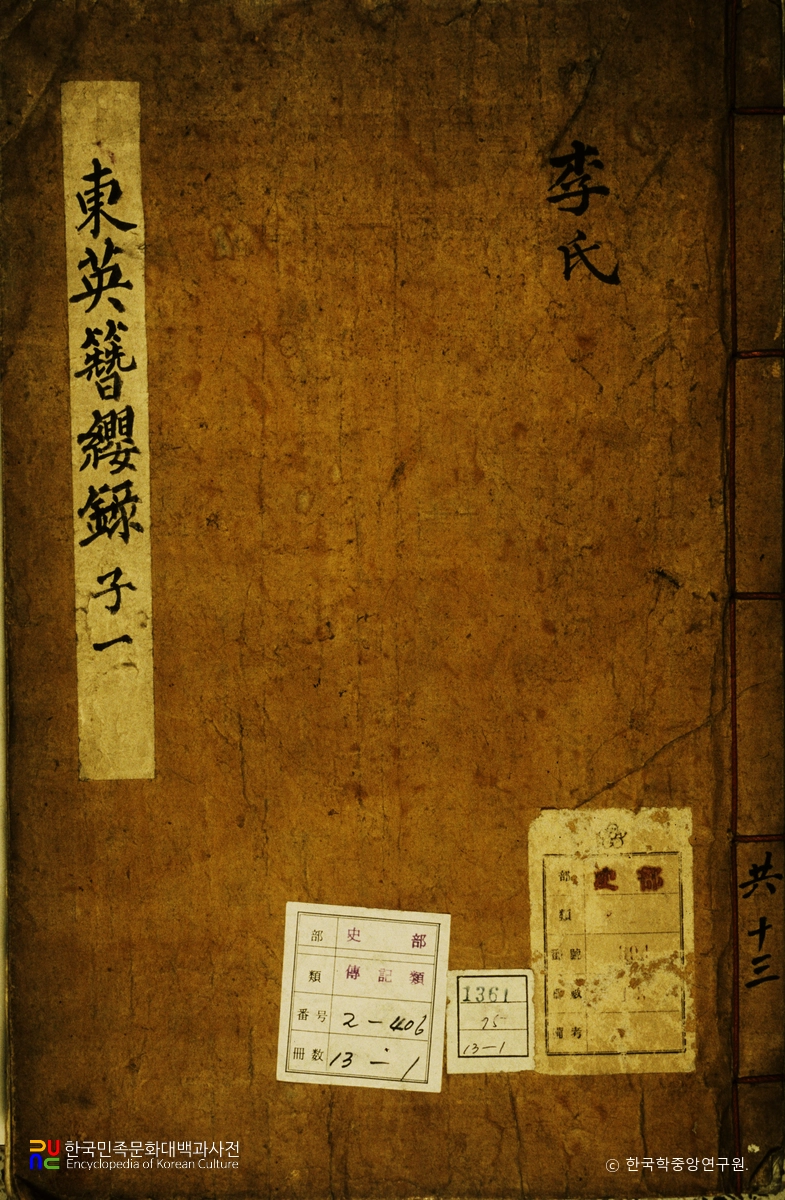 東英簪纓錄 子一
李氏
共十三
部 史部
類 傳記類
番号 2-406
冊数 13-1
1361
75
13-1
部 史部
類
考
한국민족문화대백과사전
Encyclopedia of Korean Culture
ⓒ 한국학중앙연구원.